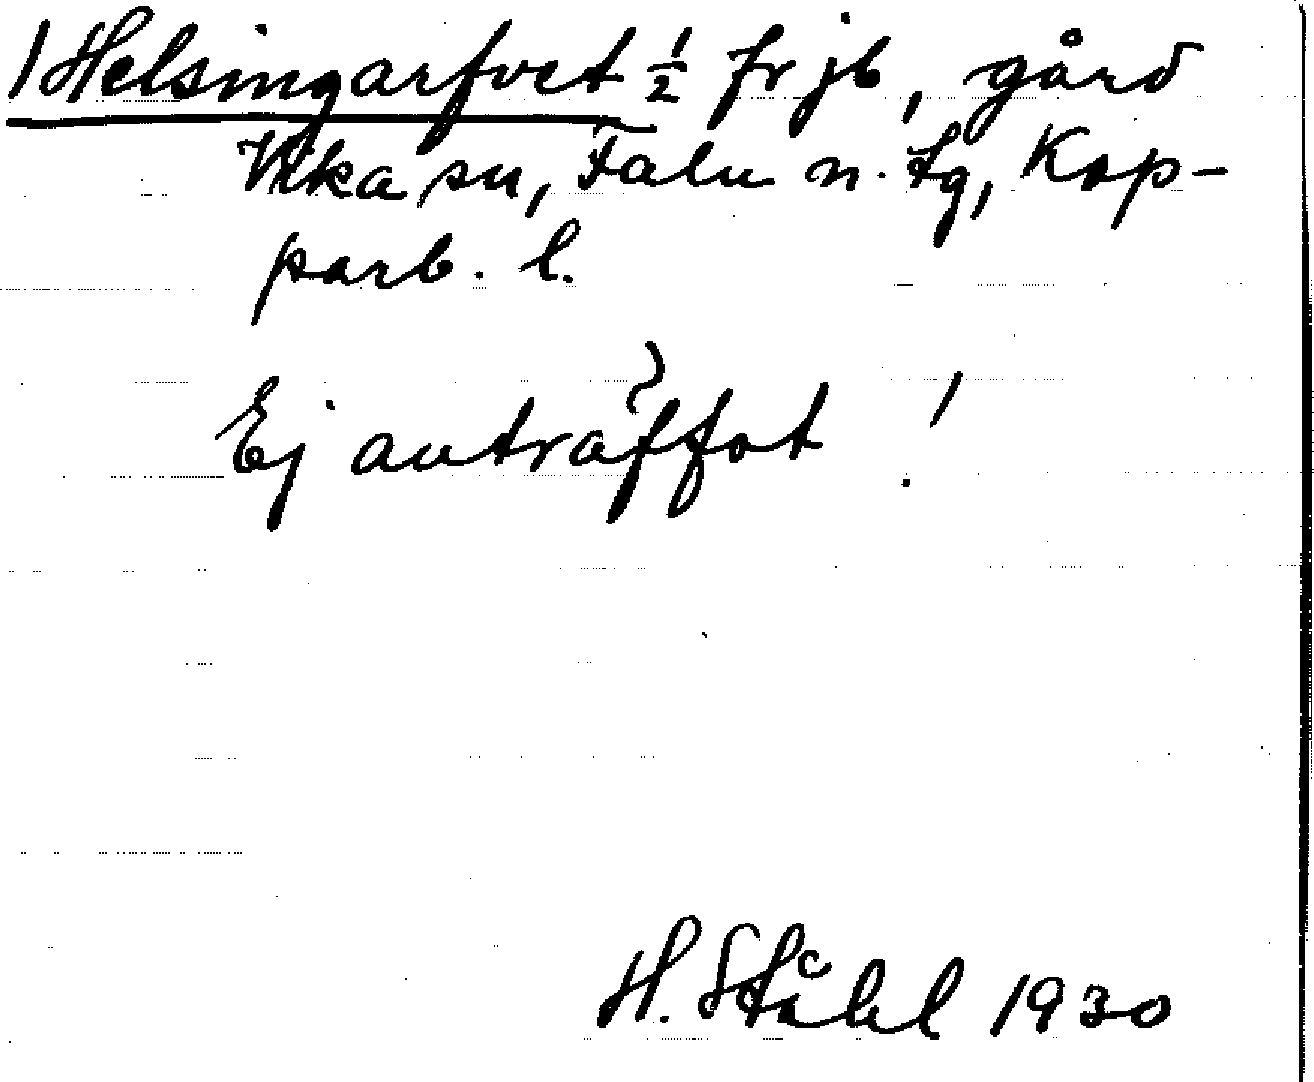 /Helsingarfvet ½ fr jb, gård
Vika sn, Falu n. tg, Kop-
parb. l.
Ej anträffat !
H. Ståhl 1930